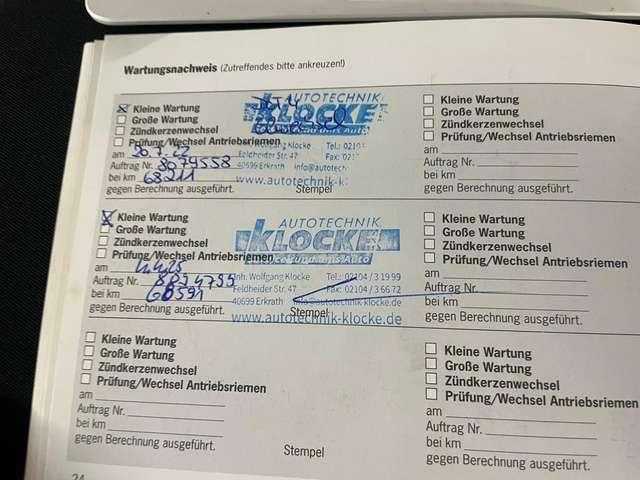 Wartungsnachweis (Zutreffendes bitte ankreuzen!)
Kleine Wartung
Große Wartung
Zündkerzenwechsel
Prüfung/Wechsel Antriebsriemen
am 30.7.22
Auftrag Nr. 8079558
bei km 68211
gegen Berechnung ausgeführt.
AUTOTECHNIK
KLOCKE
Wolfgang Klocke
Feldheider Str. 47
40699 Erkrath
Tel.: 0210
Fax: 021
info@autotech
www.autotechnik-k
Stempel
Kleine Wartung
Große Wartung
Zündkerzenwechsel
Prüfung/Wechsel Antriebsriemen
am
Auftrag Nr.
bei km
gegen Berechnung ausgeführt.
Kleine Wartung
Große Wartung
Zündkerzenwechsel
Prüfung/Wechsel Antriebsriemen
am
Auftrag Nr.
bei km
gegen Berechnung ausgeführt.
AUTOTECHNIK
KLOCKE
Inh. Wolfgang Klocke
Feldheider Str. 47
40699 Erkrath
Tel.: 02104 / 3 19 99
Fax: 02104 / 3 66 72
info@autotechnik-klocke.de
www.autotechnik-klocke.de
Stempel
Kleine Wartung
Große Wartung
Zündkerzenwechsel
Prüfung/Wechsel Antriebsriemen
am
Auftrag Nr.
bei km
gegen Berechnung ausgeführt.
Kleine Wartung
Große Wartung
Zündkerzenwechsel
Prüfung/Wechsel Antriebsriemen
am
Auftrag Nr.
bei km
gegen Berechnung ausgeführt.
Stempel
Kleine Wartung
Große Wartung
Zündkerzenwechsel
Prüfung/Wechsel Antriebsriemen
am
Auftrag Nr.
bei km
gegen Berechnung ausgeführt.
24